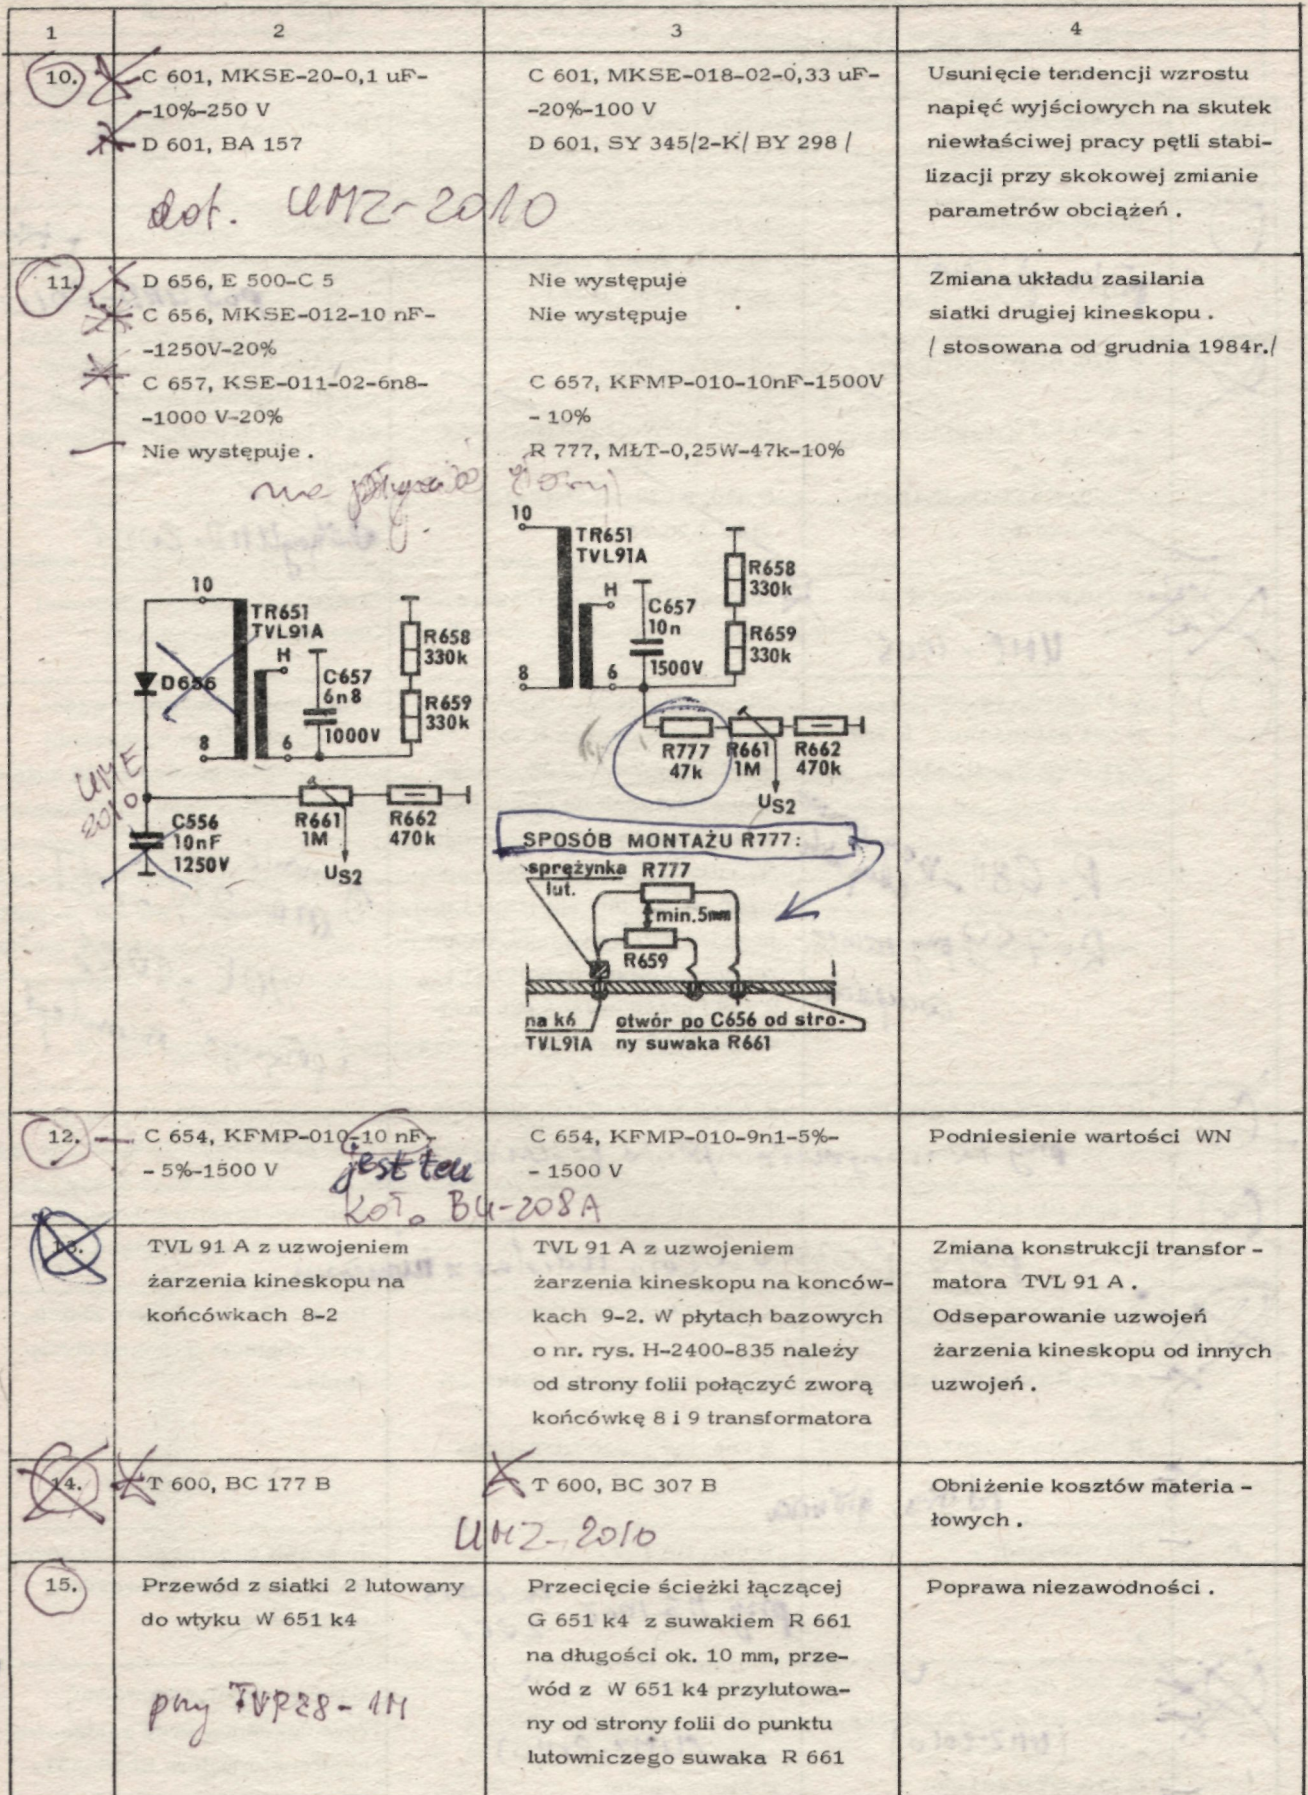 1
2
3
4
10.
C 601, MKSE-20-0,1 uF-
-10%-250 V
D 601, BA 157
dot. UMZ-2010
C 601, MKSE-018-02-0,33 uF-
-20%-100 V
D 601, SY 345/2-K/ BY 298 /
Usunięcie tendencji wzrostu
napięć wyjściowych na skutek
niewłaściwej pracy pętli stabi-
lizacji przy skokowej zmianie
parametrów obciążeń .
11.
D 656, E 500-C 5
C 656, MKSE-012-10 nF-
-1250V-20%
C 657, KSE-011-02-6n8-
-1000 V-20%
Nie występuje .
Nie występuje
Nie występuje
C 657, KFMP-010-10nF-1500V
- 10%
R 777, MŁT-0,25W-47k-10%
Zmiana układu zasilania
siatki drugiej kineskopu .
/ stosowana od grudnia 1984r./
10
TR651
TVL91A
H
D656
C657
6n8
1000V
R658
330k
R659
330k
8
6
2010
C556
10nF
1250V
R661
1M
R662
470k
US2
10
TR651
TVL91A
H
C657
10n
1500V
R658
330k
R659
330k
8
6
R777
47k
R661
1M
R662
470k
US2
SPOSÓB MONTAŻU R777:
sprężynka
lut.
R777
min.5mm
R659
na k6
TVL91A
otwór po C656 od stro-
ny suwaka R661
12.
C 654, KFMP-010-10 nF-
- 5%-1500 V
jest teu
BU-208A
C 654, KFMP-010-9n1-5%-
- 1500 V
Podniesienie wartości WN
13.
TVL 91 A z uzwojeniem
żarzenia kineskopu na
końcówkach 8-2
TVL 91 A z uzwojeniem
żarzenia kineskopu na konców-
kach 9-2. W płytach bazowych
o nr. rys. H-2400-835 należy
od strony folii połączyć zworą
końcówkę 8 i 9 transformatora
Zmiana konstrukcji transfor -
matora TVL 91 A .
Odseparowanie uzwojeń
żarzenia kineskopu od innych
uzwojeń .
14.
T 600, BC 177 B
T 600, BC 307 B
UMZ-2010
Obniżenie kosztów materia -
łowych .
15.
Przewód z siatki 2 lutowany
do wtyku W 651 k4
przy TVP28-1M
Przecięcie ścieżki łączącej
G 651 k4 z suwakiem R 661
na długości ok. 10 mm, prze-
wód z W 651 k4 przylutowa-
ny od strony folii do punktu
lutowniczego suwaka R 661
Poprawa niezawodności .